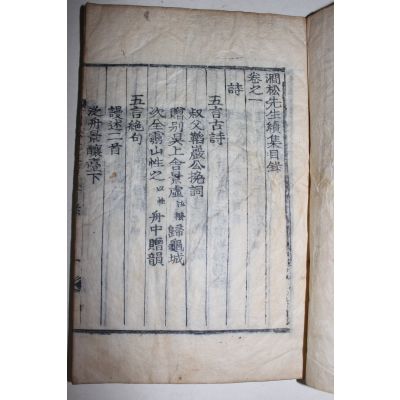 澗松先生續集目錄
卷之一
詩
五言古詩
叔父韜巖公挽詞
贈別吳上舍景虛 歸龜城
次全霽山性之 舟中贈韻
五言絶句
謾述二首
泛舟景釀臺下